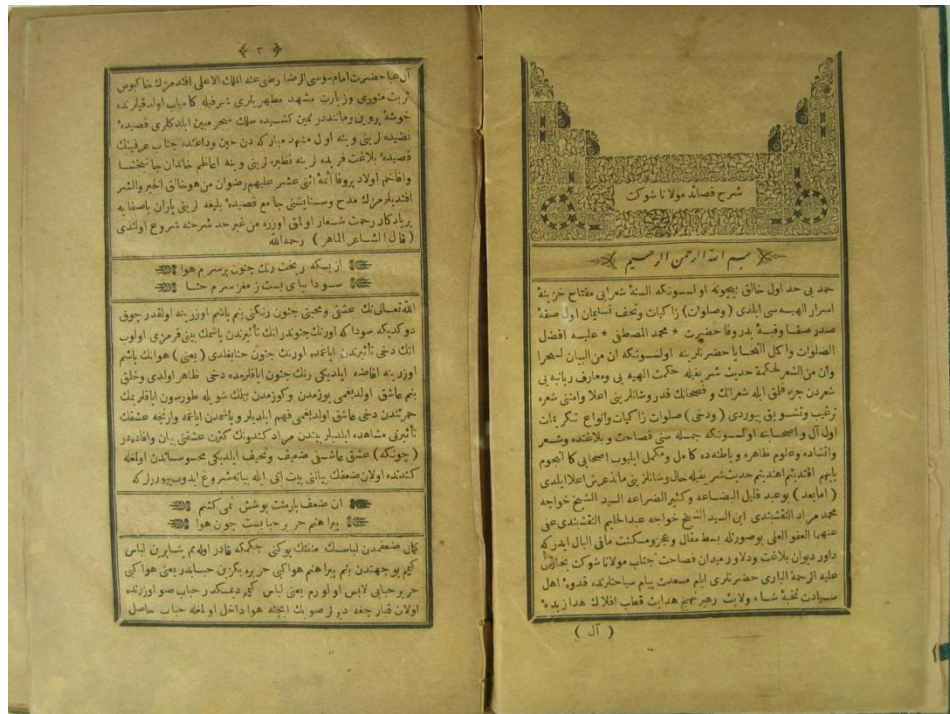 شرح قصائد مولانا شوكت
بسم الله الرحمن الرحيم
حمد بى حد اول خالق بيچونه اولسونكه السنۀ شعرايى مفتاح خزينۀ
اسرار الهيه سى ايلدى (وصلوات) زاكيات وتحف تسليمات اول صفۀ
صدر صفا وقبۀ بدر وفا حضرت * محمد المصطفى * عليه افضل
الصلوات واكمل التحايا حضرتلرينه اولسونكه ان من البيان لسحرا
وان من الشعر لحكمة حديث شريفيله حكمت الهيه يى ومعارف ربانيه يى
شعردن جزء قلق ايله شعرانك و فصحانك قدر وشانلرينى اعلا وامتنى شعره
ترغيب وتشويق بيوردى (ودخى) صلوات زاكيات وانواع تكريمات
اول آل و اصحابنه اولسونكه جمله سى فصاحت و بلاغتده وشعر
وانشاده وعلوم ظاهره و باطنه ده كامل ومكمل ايليوب اصحابى كالنجوم
بايهم اقتديتم اهتديتم حديث شريفيله حال وشانلرينى اعلا ايلدى
(امابعد) بوعبد قليل البضاعه وكثير الضراعه السيد الشيخ خواجه
محمد مراد النقشبندى ابن السيد الشيخ خواجه عبدالحليم النقشبندى عفى
عنهما العفو العلى بوصورتله بسط مقال و عجز ومسكنت مافى البال ايدركه
داور ديوان بلاغت ودلاور ميدان فصاحت جناب مولانا شوكت بخارائى
عليه الرحمة البارى حضرتلرى ايام سعادت سياحتلرنده قدوۀ اهل
سيادت نخبۀ شاه ولايت رهبر نهج هدايت قطب افلاك هدا زبدۀ
( آل )
﴿ ٣ ﴾
آل عبا حضرت امام موسى الرضا رضى عنه الملك الاعلى افندمزك خاكبوس
تربت منورى وزيارت مشهد مطهرلرى شرفيله كامياب اولدقلرنده
خوشۀ پروين ومانند در ثمين كشيده سلك سحر مبين ايلدكلرى قصيدۀ
نضيده لرينى وينه اول مشهد مباركه دن حين وداعنده جناب عرفينك
قصيدۀ بلاغت فريده لرينه نظيره لرينى وينه اعاظم خاندان
وافاخم اولاد پروفا ائمۀ اثنى عشر عليهم رضوان من هو خالق الخير والشر
افنديلرمزك مدح وستايشنى جامع قصيدۀ بليغه لرينى ياران باصفايه
بر يادكار رحمت شعار اولمق اوزره من غير حد شرحنه شروع اولندى
(قال الشاعر الماهر) رحمه الله
از بسكه ريخت رنك جنون بر سرم هوا
سوداى پاى بست ز مغز سرم حنا
الله تعالى نك عشق ومحبتى جنون رنكنى بنم باشم اوزرينه اولقدر چوق
دوكديكه سودا كه اورنك جنوندر انك تأثيرندن باشمك بينى قرمزى اولوب
انك دخى تأثيرندن اياغمده اورنك جنون حنا بغلدى (يعنى) هوانك باشم
اوزرينه افاضه ايلديكى رنك جنون اياقلرمده دخى ظاهر اولدى وخلق
بنم عاشق اولديغمى يوزمدن وكوزمدن بيلمك شويله طورسون اياقلريمك
حمرتندن دخى عاشق اولديغمى فهم ايلديلر و باشمدن اياغمه وارنجه عشقك
تأثيرنى مشاهده ايلديلر بيتدن مراد كندونك كثرت عشقنى بيان وافاده در
(چونكه) عشق عاشقى ضعيف ونحيف ايلديكى محسوساتدن اولمغله
كندنده اولان ضعفك بياننى بيت آتى ايله بيانه شروع ايدوب بيوررلركه
از ضعف بار منت پوشش نمى كشم
پيراهنم حرير حبابست چون هوا
كمال ضعفمدن لباسك منتنك يوكنى چكمكه قادر اوله مم بناءً برين لباس
كيم بوجهتدن بنم پيراهنم هواكبى حريره بكزين حبابدر يعنى هواكبى
حرير حبابى لابس اولورم يعنى لباس كيم ديمكدر حباب صو اوزرنده
اولان قبارجغه ديرلر صويك ايچنه هوا داخل اولمغله حباب حاصل